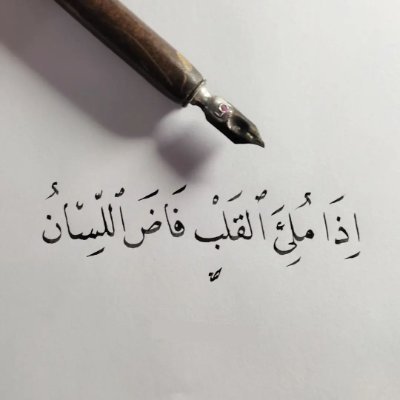 اِذَا مُلِئَ ٱلْقَلَبْ فَاضَ ٱللِّسَانُ